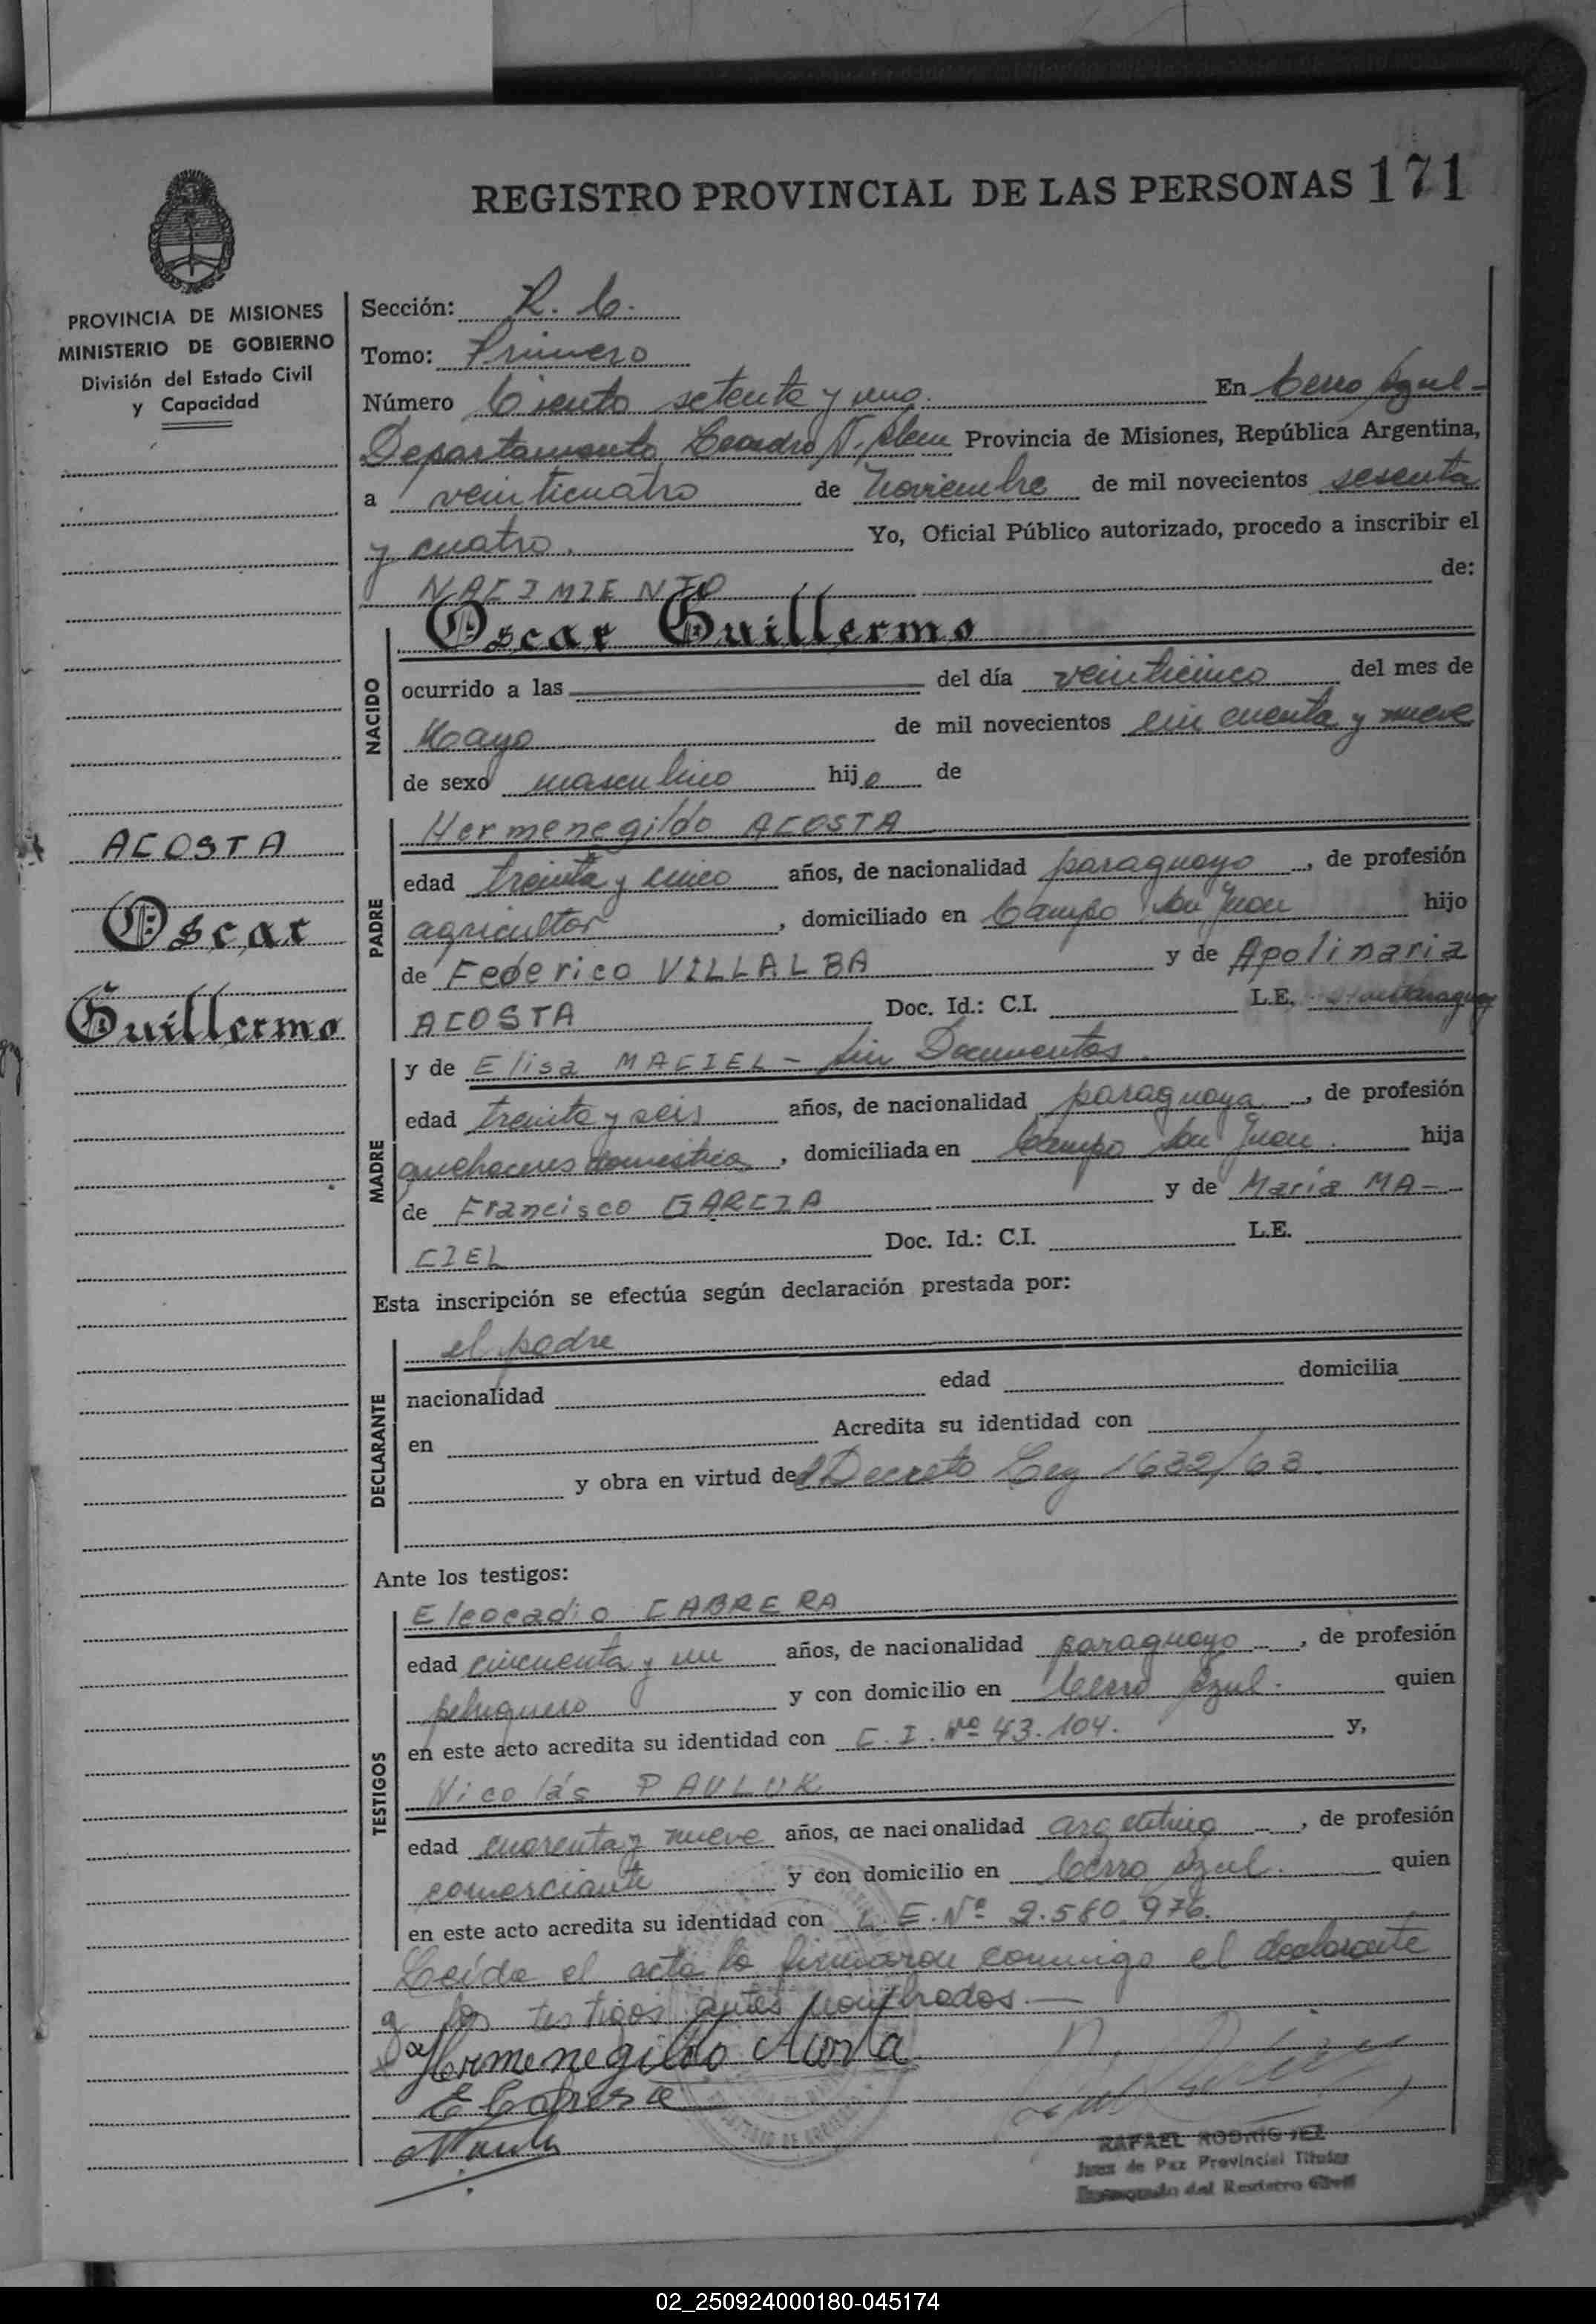 REGISTRO PROVINCIAL DE LAS PERSONAS 171
PROVINCIA DE MISIONES
MINISTERIO DE GOBIERNO
División del Estado Civil
y Capacidad
ACOSTA
Oscar
Guillermo
Sección: R. C.
Tomo: Primero
Número Ciento setenta y uno. En Cerro Azul -
Departamento Leandro N. Alem Provincia de Misiones, República Argentina,
a veinticuatro de Noviembre de mil novecientos sesenta
y cuatro. Yo, Oficial Público autorizado, procedo a inscribir el
NACIMIENTO de:
NACIDO
Oscar Guillermo
ocurrido a las del día veinticinco del mes de
Mayo de mil novecientos cincuenta y nueve
de sexo masculino hijo de
PADRE
Hermenegildo ACOSTA
edad treinta y cinco años, de nacionalidad paraguayo, de profesión
agricultor, domiciliado en Campo San Juan hijo
de Federico VILLALBA y de Apolinaria
ACOSTA Doc. Id.: C.I. L.E.
MADRE
y de Elisa MACIEL - Sin Documentos.
edad treinta y seis años, de nacionalidad paraguaya, de profesión
quehaceres domésticos, domiciliada en Campo San Juan. hija
de Francisco GARCIA y de María MA-
CIEL Doc. Id.: C.I. L.E.
Esta inscripción se efectúa según declaración prestada por:
DECLARANTE
el padre
nacionalidad edad domicilia
en Acredita su identidad con
y obra en virtud del Decreto Ley 1632/63.
Ante los testigos:
TESTIGOS
Eleocadio CABRERA
edad cincuenta y un años, de nacionalidad paraguayo, de profesión
peluquero y con domicilio en Cerro Azul. quien
en este acto acredita su identidad con C. I. Nº 43.104. y,
Nicolás PAULUK
edad cuarenta y nueve años, de nacionalidad argentino, de profesión
comerciante y con domicilio en Cerro Azul. quien
en este acto acredita su identidad con L. E. Nº 2.580.976.
Leída el acta la firmaron conmigo el declarante
y los testigos antes nombrados.—
Hermenegildo Acosta
E Cabrera
RAFAEL RODRIGUEZ
Juez de Paz Provincial Titular
Encargado del Registro Civil
02_250924000180-045174